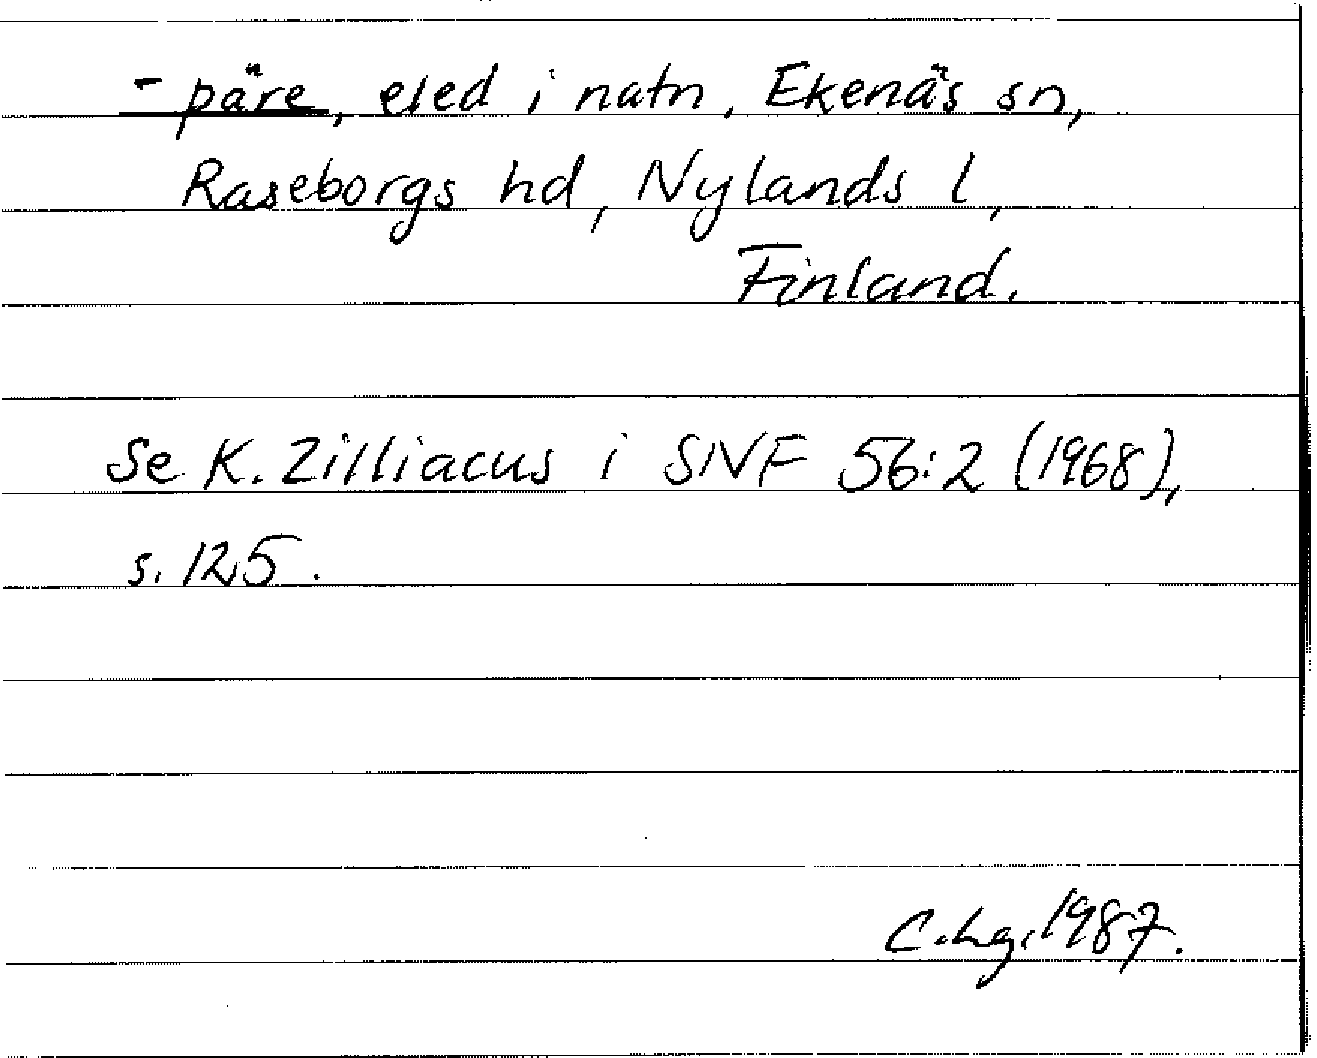 - päre, eled i natn, Ekenäs sn,
Raseborgs hd, Nylands l,
Finland.
Se K. Zilliacus i SNF 56:2 (1968),
s. 125.
C.hg. 1987.